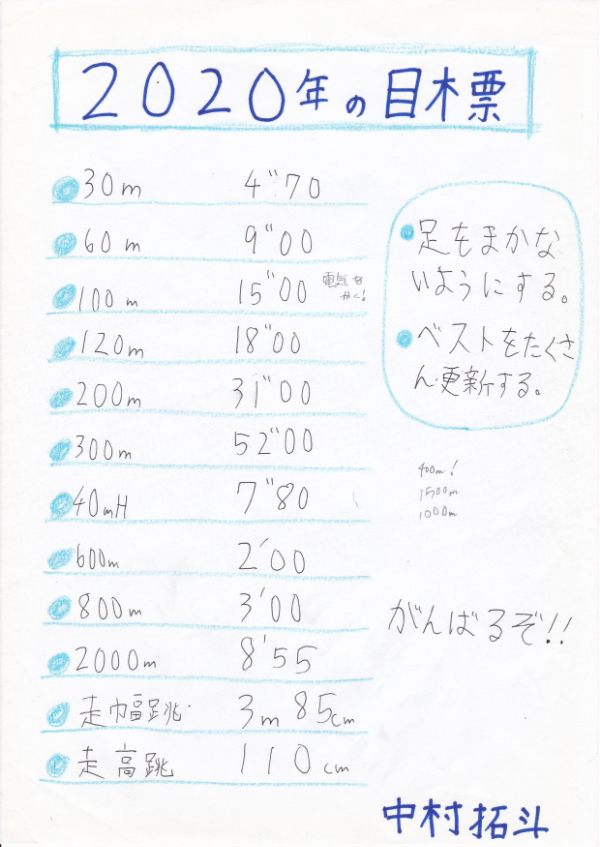 2020年の目標
30m 4"70
60m 9"00
100m 15"00 電気を
かく!
120m 18"00
200m 31"00
300m 52"00
40mH 7"80
600m 2'00
800m 3'00
2000m 8'55
走巾畐跳 3m 85cm
走高跳 110cm
足をまかな
いようにする。
ベストをたくさ
ん更新する。
400m!
1500m
1000m
がんばるぞ!!
中村拓斗